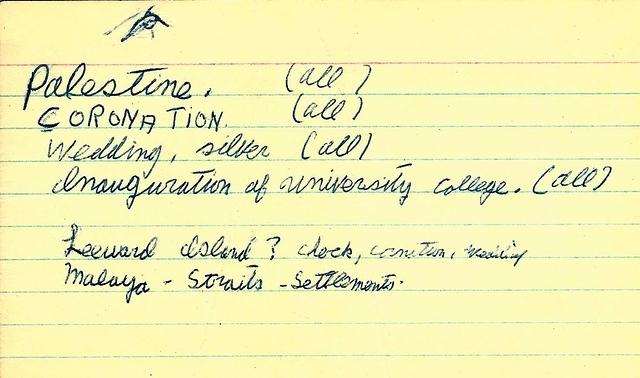 Palestine. (all)
CORONATION. (all)
Wedding, silver (all)
Inauguration of university college. (all)
Leeward Island? check, cornition, wedding
Malaya - Straits - Settlements.